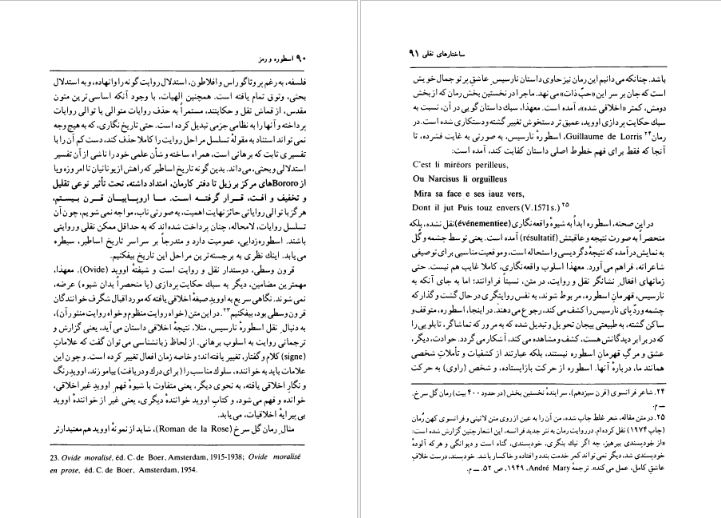 ۹۰ اسطوره و رمز
فلسفه، به رغم پروتاگوراس و افلاطون، استدلال روایت گونه را وانهاده، و به استدلال
بحثی، وثوق تمام یافته است. همچنین الهیات، با وجود آنکه اساسی ترین متون
مقدس، از قماش نقل و حکایتند، مستمراً به حذف روایات متوالی یا توالی روایات
پرداخته و آنها را به نظامی جزمی تبدیل کرده است. حتی تاریخ نگاری، که به هیچ وجه
نمی تواند استناد به مقولهٔ تسلسل مراحل روایت را کاملاً حذف کند، دست کم آن را با
تفسیری ثابت که برهانی است، همراه ساخته و شأن علمی خود را ناشی از آن تفسیر
استدلالی و بحثی، می داند. بدین گونه تاریخ اساطیر که راهش از یونانیان تا امروز و یا
Bororoهای مرکز برزیل تا دفتر کارمان، امتداد داشته، تحت تأثیر نوعی تقلیل
و تخفیف و افت، قرار گرفته است. ما اروپاییان قرن بیستم،
هرگز با توالی روایاتی حائز نهایت اهمیت، به صورتی ناب، مواجه نمی شویم، چون آن
تسلسل روایات، لامحاله، چنان پرداخت شده اند که به حداقل ممکن نقلی و روایتی
باشند. اسطوره زدایی، عمومیت دارد و متدرجاً بر سراسر تاریخ اساطیر، سیطره
می یابد. اینک نظری به برجسته ترین مراحل این تاریخ بیفکنیم.
قرون وسطی، دوستدار نقل و روایت است و شیفتهٔ اووید (Ovide). معهذا،
مهمترین مضامین، دیگر به سبک حکایت پردازی (یا منحصراً بدان شیوه) عرضه،
نمی شوند. نگاهی سریع به اووید صبغهٔ اخلاقی یافته که مورد اقبال شگرف خوانندگان
قرون وسطی بود، بیفکنیم۲۳. در این متن (خواه روایت منظوم و خواه روایت منثور آن)،
به دنبال نقل اسطورهٔ نارسیس، مثلا، نتیجهٔ اخلاقی داستان می آید، یعنی گزارش و
ترجمانی روایت به اسلوب برهانی. از لحاظ زبانشناسی می توان گفت که علامات
(signe) کلام و گفتار، تغییر یافته اند؛ و خاصه زمان افعال تغییر کرده است. و چون این
علامات باید به خواننده، سلوک مناسب را (برای درک و دریافت) بیاموزند، اووید رنگ
و نگار اخلاقی یافته، به نحوی دیگر، یعنی متفاوت با شیوهٔ فهم اووید غیراخلاقی،
خوانده و فهم می شود، و کتاب اووید خوانندهٔ دیگری، یعنی غیر از خوانندهٔ اووید
بی پیرایهٔ اخلاقیات، می یابد.
مثال رمان گل سرخ (Roman de la Rose)، شاید از نمونهٔ اووید هم معنادارتر
23. Ovide moralisé, éd. C. de Boer, Amsterdam, 1915-1938; Ovide moralisé
en prose, éd. C. de Boer, Amsterdam, 1954.
ساختارهای نقلی ۹۱
باشد. چنانکه می دانیم این رمان نیز حاوی داستان نارسیس عاشق پرتو جمال خویش
است که جان بر سر این «حبّ ذات» می نهد. ماجرا در نخستین بخش رمان که از بخش
دومش، کمتر «اخلاقی شده»، آمده است. معهذا، سبک داستان گویی در آن، نسبت به
سبک حکایت پردازی اووید، عمیق تر دستخوش تغییر گشته و دستکاری شده است. در
رمان۲۴ Guillaume de Lorris، اسطورهٔ نارسیس، به صورتی به غایت فشرده، تا
آنجا که فقط برای فهم خطوط اصلی داستان کفایت کند، آمده است:
C'est li miréors perilleus,
Ou Narcisus li orguilleus
Mira sa face e ses iauz vers,
Dont il jut Puis touz envers (V.1571s.)۲۵
در این صحنه، اسطوره ابداً به شیوهٔ واقعه نگاری (événementiee) نقل نشده، بلکه
منحصراً به صورت نتیجه و عاقبتش (résultatif) آمده است. یعنی توسط چشمه و گل
به نمایش درآمده که نتیجهٔ دگردیسی و استحاله است، و موقعیت مناسبی برای توصیفی
شاعرانه، فراهم می آورد. معهذا اسلوب واقعه نگاری، کاملا غایب هم نیست. حتی
زمانهای افعال نشانگر نقل و روایت، در متن، نسبتاً فراوانند؛ اما به جای آنکه به
نارسیس، قهرمان اسطوره، مربوط شوند، به نفس روایتگری در حال گشت و گذار که
چشمه و ردّ پای نارسیس را کشف می کند، رجوع می دهند. در اینجا، اسطوره، متوقف و
ساکن گشته، به طبیعتی بیجان تحویل و تبدیل شده که به مرور که تماشاگر، تابلویی را
که در برابر دیدگانش هست، کشف و مشاهده می کند، آشکار می گردد. حوادث، دیگر،
عشق و مرگ قهرمان اسطوره نیستند، بلکه عبارتند از کشفیات و تأملات شخصی
همانند ما، دربارهٔ آنها. اسطوره از حرکت بازایستاده، و شخص (راوی) به حرکت
۲۴. شاعر فرانسوی (قرن سیزدهم)، سرایندهٔ نخستین بخش (در حدود ۴۰۰۰ بیت) رمان گل سرخ.
— م.
۲۵. در متن مقاله، شعر غلط چاپ شده، من آن را به عین از روی متن لاتینی و فرانسوی کهن رُمان
(چاپ ۱۹۷۴) نقل کرده ام. در روایت رمان به نثر جدید فرانسه، این اشعار چنین گزارش شده است: